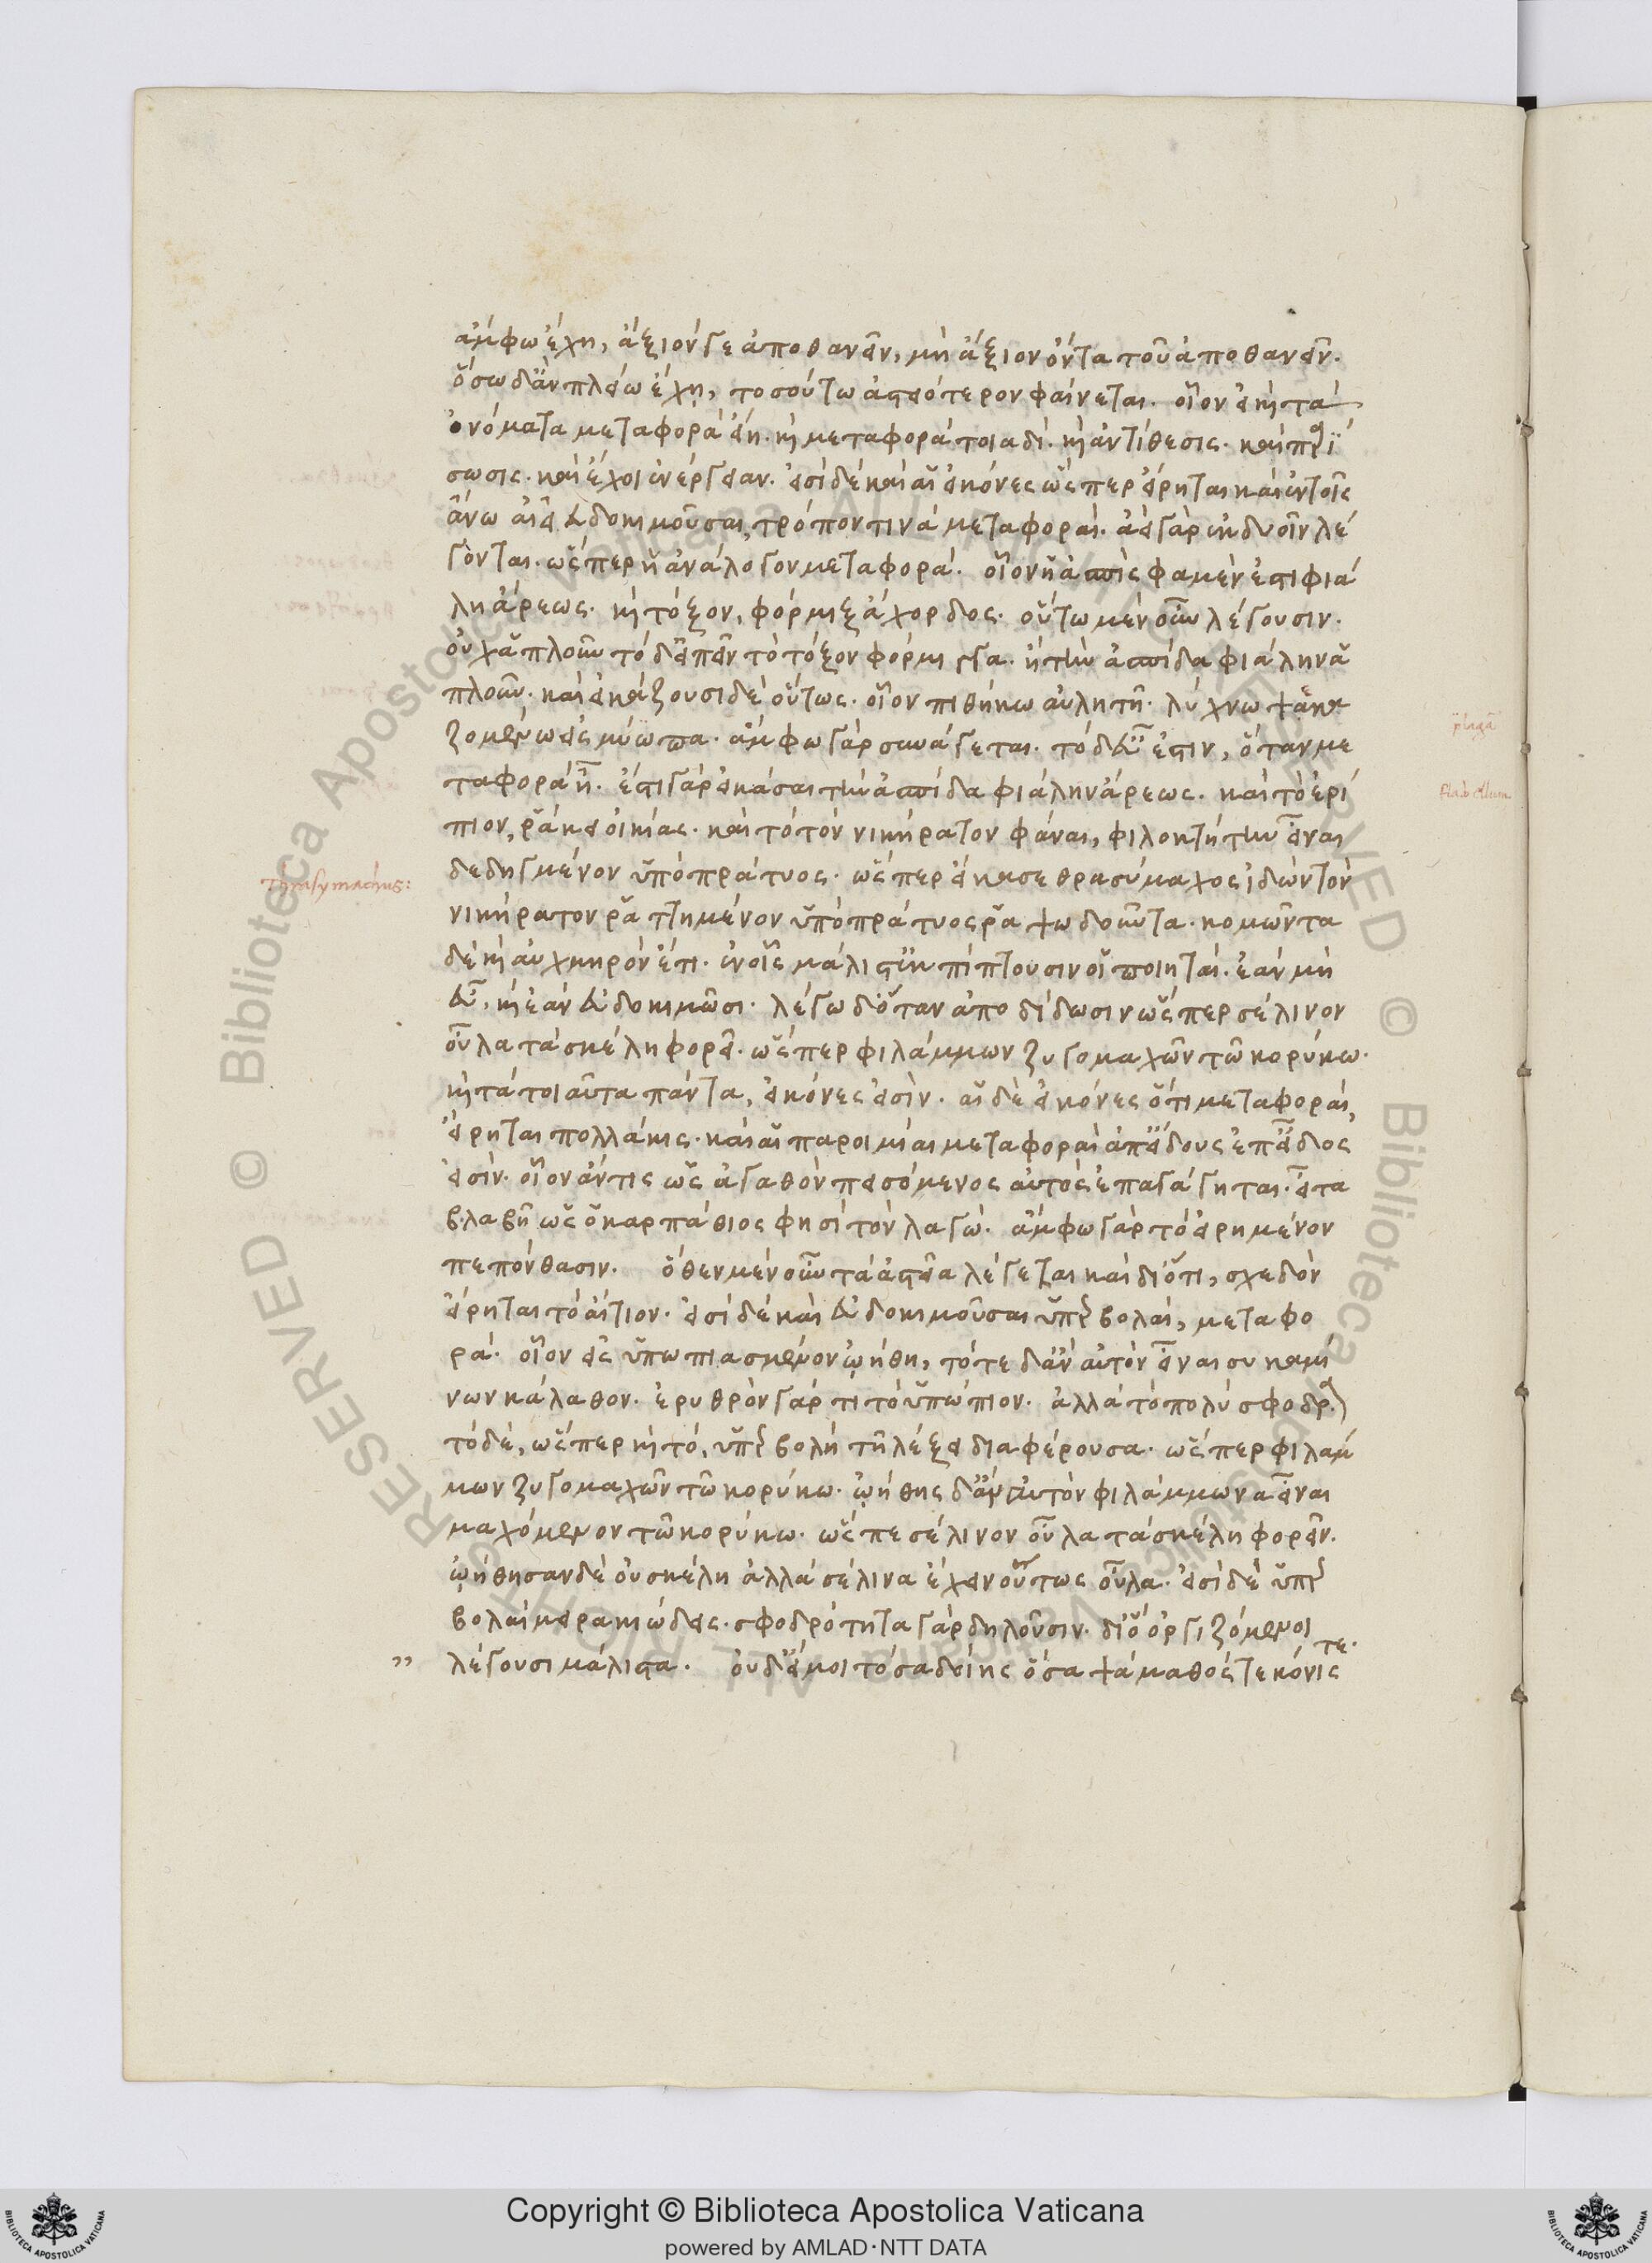 ἄμφω ἔχη, ἄξιόν γε ἀποθανεῖν, μὴ ἄξιον ὄντα τοῦ ἀποθανεῖν.
ὅσω δ' ἂν πλείω ἔχη, τοσούτω ἀστειότερον φαίνεται. οἷον εἰ καὶ τὰ
ὀνόματα μεταφορὰ εἴη. καὶ μεταφορὰ τοιαδὶ. καὶ ἀντίθεσις. καὶ παρί
σωσις. καὶ ἔχοι ἐνέργειαν. εἰσὶ δὲ καὶ αἱ εἰκόνες ὥσπερ εἴρηται καὶ ἐν τοῖς
ἄνω αἰεὶ εὐδοκιμοῦσαι τρόπον τινὰ μεταφοραί. ἀεὶ γὰρ ἐκ δυοῖν λέ
γονται. ὥσπερ ἡ ἀνάλογον μεταφορά. οἷον ἡ ἀσπὶς φαμὲν ἐστι φιά
λη ἄρεως. καὶ τόξον, φόρμιξ ἄχορδος. οὕτω μὲν οὖν λέγουσιν.
οὐχ ἁπλοῦν τὸ δ' εἰπεῖν τὸ τόξον φόρμιγγα. ἢ τὴν ἀσπίδα φιάλην ἁ
πλοῦν. καὶ εἰκάζουσι δὲ οὕτως. οἷον πιθήκω αὐλητὴν. λύχνω ψακα
ζομένω εἰς μύωπα. ἄμφω γὰρ συνάγεται. τὸ δ' εὖ ἐστιν, ὅταν με
ταφορὰ ᾖ. ἔστι γὰρ εἰκάσαι τὴν ἀσπίδα φιάλην ἄρεως. καὶ τὸ ἐρί
πιον, ῥάκει οἰκίας. καὶ τὸ τὸν νικήρατον φάναι, φιλοκτήτην εἶναι
δεδηγμένον ὑπὸ πράτυος. ὥσπερ εἴκασε θρασύμαχος ἰδὼν τὸν
νικήρατον ῥαττημένον ὑπὸ πράτυος ῥαψωδοῦντα. κομῶντα
δὲ καὶ αὐχμηρὸν ἔτι. ἐν οἷς μάλιστ' ἐκπίπτουσιν οἱ ποιηταί. ἐὰν μὴ
εὖ, καὶ ἐὰν εὐδοκιμῶσι. λέγω δ' ὅταν ἀποδίδωσιν ὥσπερ σέλινον
οὖλα τὰ σκέλη φορεῖ. ὥσπερ φιλάμμων ζυγομαχῶν τῶ κορύκω.
καὶ τὰ τοιαῦτα πάντα, εἰκόνες εἰσίν. αἱ δὲ εἰκόνες ὅτι μεταφοραί,
εἴρηται πολλάκις. καὶ αἱ παροιμίαι μεταφοραὶ ἀπ' εἴδους ἐπ' εἶδος
εἰσίν. οἷον ἄν τις ὡς ἀγαθὸν πεισόμενος αὐτὸς ἐπαγάγηται. εἶτα
βλαβῆ ὡς ὁ καρπάθιος φησὶ τὸν λαγώ. ἄμφω γὰρ τὸ εἰρημένον
πεπόνθασιν. ὅθεν μὲν οὖν τὰ ἀστεῖα λέγεται καὶ διότι, σχεδὸν
εἴρηται τὸ αἴτιον. εἰσὶ δὲ καὶ εὐδοκιμοῦσαι ὑπερβολαί, μεταφο
ρά. οἷον εἰς ὑπωπιασμένον ὠήθη, τότε δ' ἂν αὐτὸν εἶναι συκαμί
νων κάλαθον. ἐρυθρὸν γὰρ τι τὸ ὑπώπιον. ἀλλὰ τὸ πολὺ σφόδρα
τὸ δὲ, ὥσπερ καὶ τὸ, ὑπερβολὴ τῆ λέξει διαφέρουσα. ὥσπερ φιλάμ
μων ζυγομαχῶν τῶ κορύκω. ὠήθης δ' ἂν αὐτὸν φιλάμμωνα εἶναι
μαχόμενον τῶ κορύκω. ὥσπε σέλινον οὖλα τὰ σκέλη φορεῖν.
ὠήθησαν δὲ οὐ σκέλη ἀλλὰ σέλινα ἔχειν οὕτως οὖλα. εἰσὶ δὲ ὑπερ
βολαὶ μειρακιώδεις. σφοδρότητα γὰρ δηλοῦσιν. διὸ ὀργιζόμενοι
„ λέγουσι μάλιστα. οὐδ' εἴ μοι τόσα δοίης ὅσα ψάμαθός τε κόνις τε.
Thrasymachus:
plaga
flabellum
Copyright © Biblioteca Apostolica Vaticana
powered by AMLAD·NTT DATA